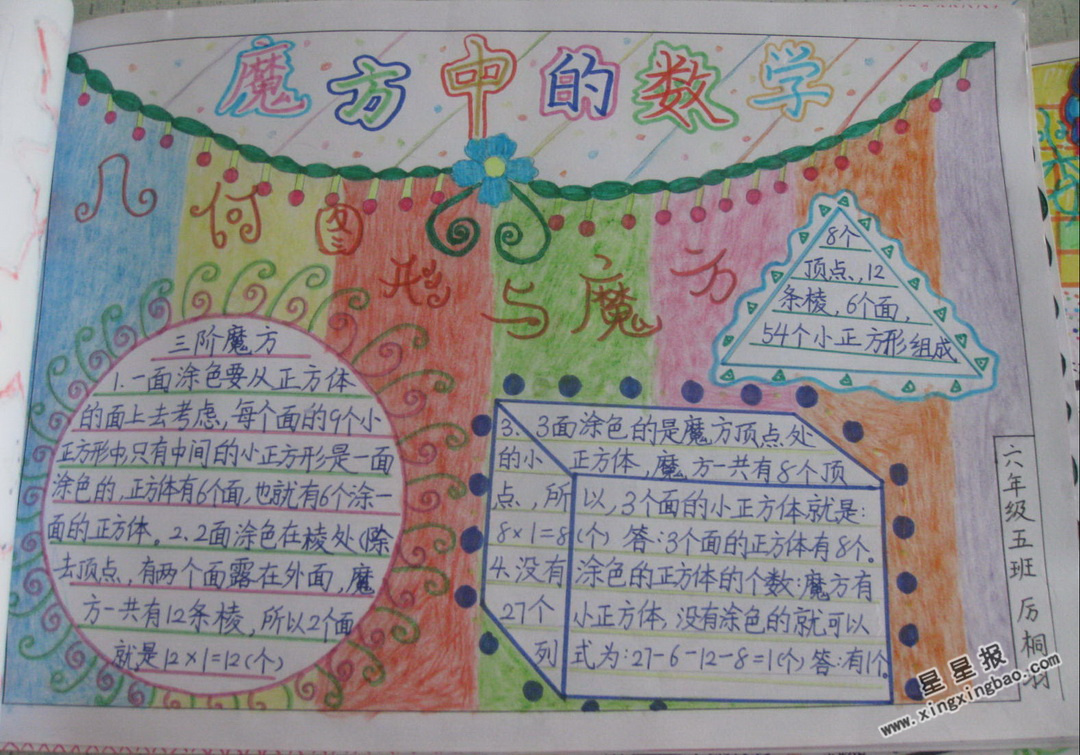 魔方中的数学
几何图形与魔方
8个
顶点,12
条棱,6个面,
54个小正方形组成
三阶魔方
1.一面涂色要从正方体
的面上去考虑,每个面的9个小
正方形中只有中间的小正方形是一面
涂色的,正方体有6个面,也就有6个涂一
面的正方体。2、2面涂色在棱处(除
去顶点,有两个面露在外面,魔
方一共有12条棱,所以2个面
就是12×1=12(个)
3、3面涂色的是魔方顶点处
的小正方体,魔方一共有8个顶
点,所以,3个面的小正方体就是:
8×1=8(个)答:3个面的正方体有8个。
4.没有涂色的正方体的个数:魔方有
27个小正方体,没有涂色的就可以
列式为:27-6-12-8=1(个)答:有1个。
六年级五班 厉桐
星星报
www.xingxingbao.com